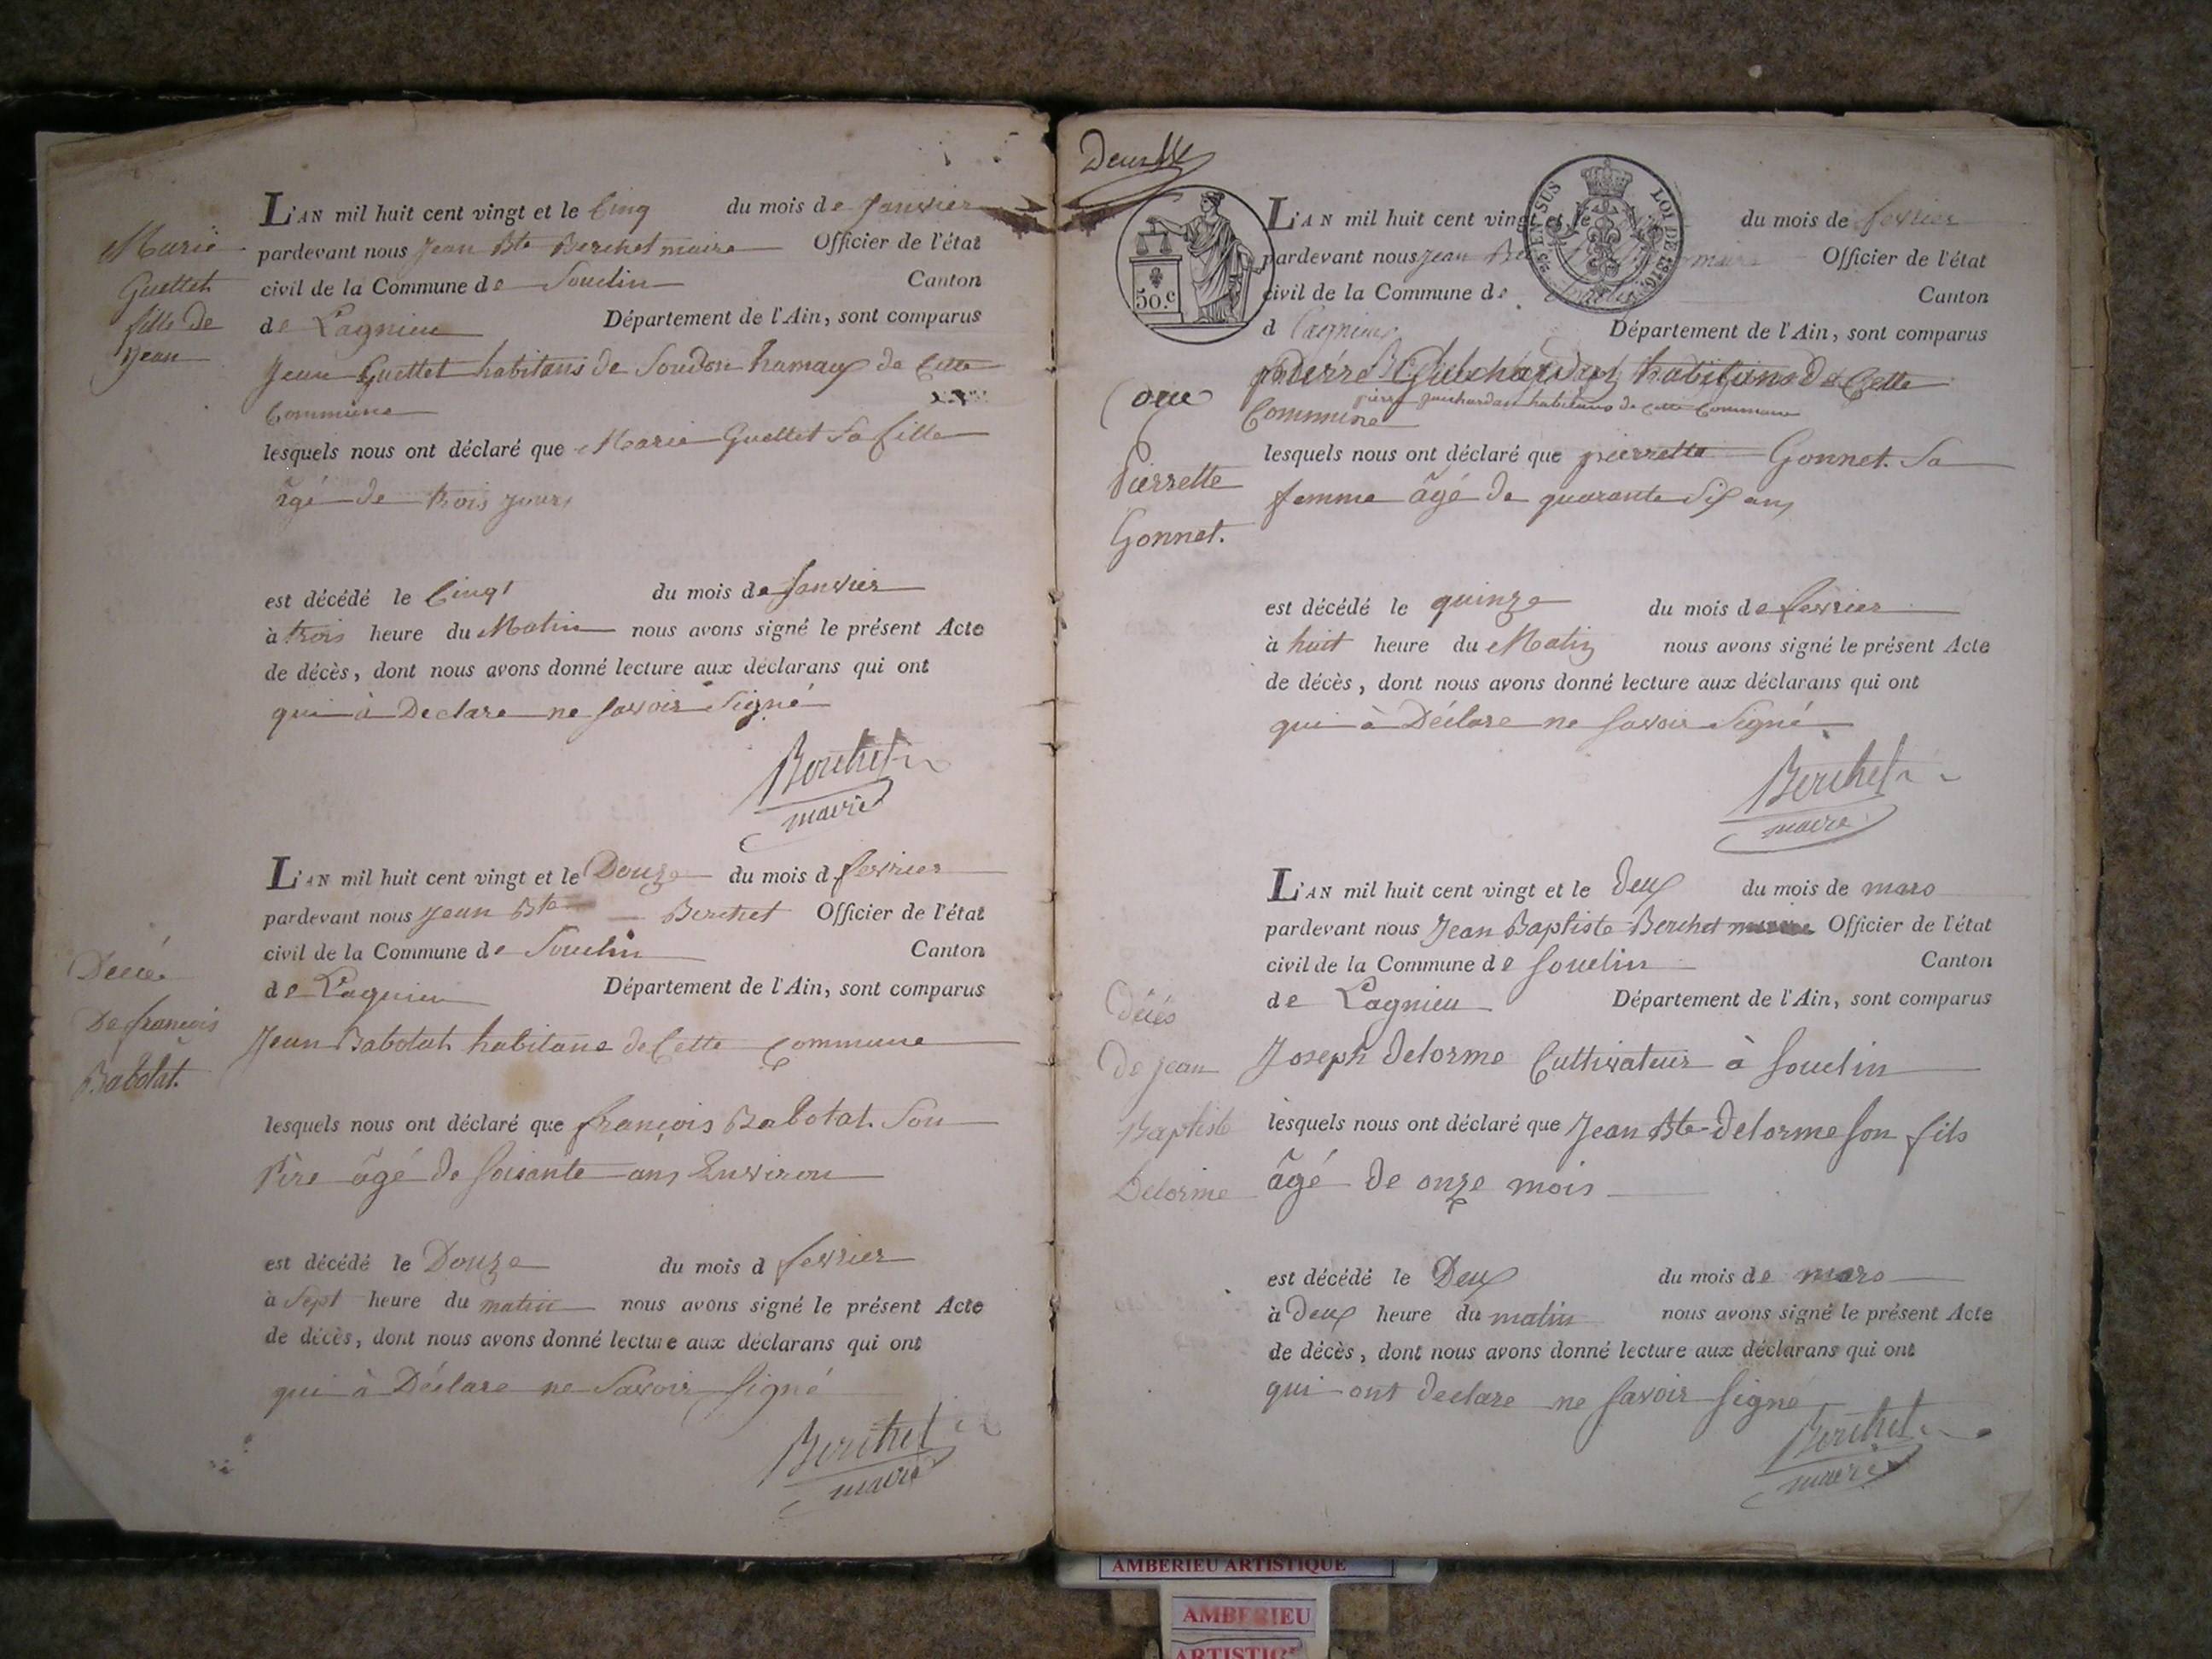 Marie
Guettet
fille de
Jean
L'AN mil huit cent vingt et le Cinq du mois de Janvier
pardevant nous Jean Bte Berchet maire Officier de l'état
civil de la Commune de Souclin Canton
de Lagnieu Département de l'Ain, sont comparus
Jean Guettet habitans de Soudon hamaux de Cette
Commune
lesquels nous ont déclaré que Marie Guettet Sa fille
âgé de trois jours
est décédé le Cinq du mois de Janvier
à trois heure du Matin nous avons signé le présent Acte
de décès, dont nous avons donné lecture aux déclarans qui ont
qui à Declare ne Savoir Signé
Berchet
maire
Décé
De françois
Babolat.
L'AN mil huit cent vingt et le Douze du mois d fevrier
pardevant nous Jean Bte Berchet Officier de l'état
civil de la Commune de Souclin Canton
de Lagnieu Département de l'Ain, sont comparus
Jean Babolat habitans de Cette Commune
lesquels nous ont déclaré que françois Babolat. Son
Père âgé de Soisante ans Environ
est décédé le Douze du mois d fevrier
à Sept heure du matin nous avons signé le présent Acte
de décès, dont nous avons donné lecture aux déclarans qui ont
qui à Déclare ne Savoir Signé
Berchet
maire
50.c
25 EN SUS LOI DE 1816
Pierrette
Gonnet.
L'AN mil huit cent vingt et le du mois de fevrier
pardevant nous Jean maire Officier de l'état
civil de la Commune de Souclin Canton
d Lagnieu Département de l'Ain, sont comparus
pierre Guichardan habitans de Cette
pierre Guichardan habitans de Cette Commune
Commune
lesquels nous ont déclaré que pierrette Gonnet. Sa
femme âgé de quarante Six ans
est décédé le quinze du mois de fevrier
à huit heure du Matin nous avons signé le présent Acte
de décès, dont nous avons donné lecture aux déclarans qui ont
qui à Déclare ne Savoir Signé
Berchet
maire
Décés
De Jean
Baptiste
Delorme
L'AN mil huit cent vingt et le Deux du mois de mars
pardevant nous Jean Baptiste Berchet Officier de l'état
civil de la Commune de Souclin Canton
de Lagnieu Département de l'Ain, sont comparus
Joseph Delorme Cultivateur à Souclin
lesquels nous ont déclaré que Jean Bte Delorme Son fils
âgé de onze mois
est décédé le Deux du mois de mars
à Deux heure du matin nous avons signé le présent Acte
de décès, dont nous avons donné lecture aux déclarans qui ont
qui ont declare ne Savoir Signé
Berchet
maire
AMBERIEU ARTISTIQUE
AMBERIEU
ARTISTIQUE